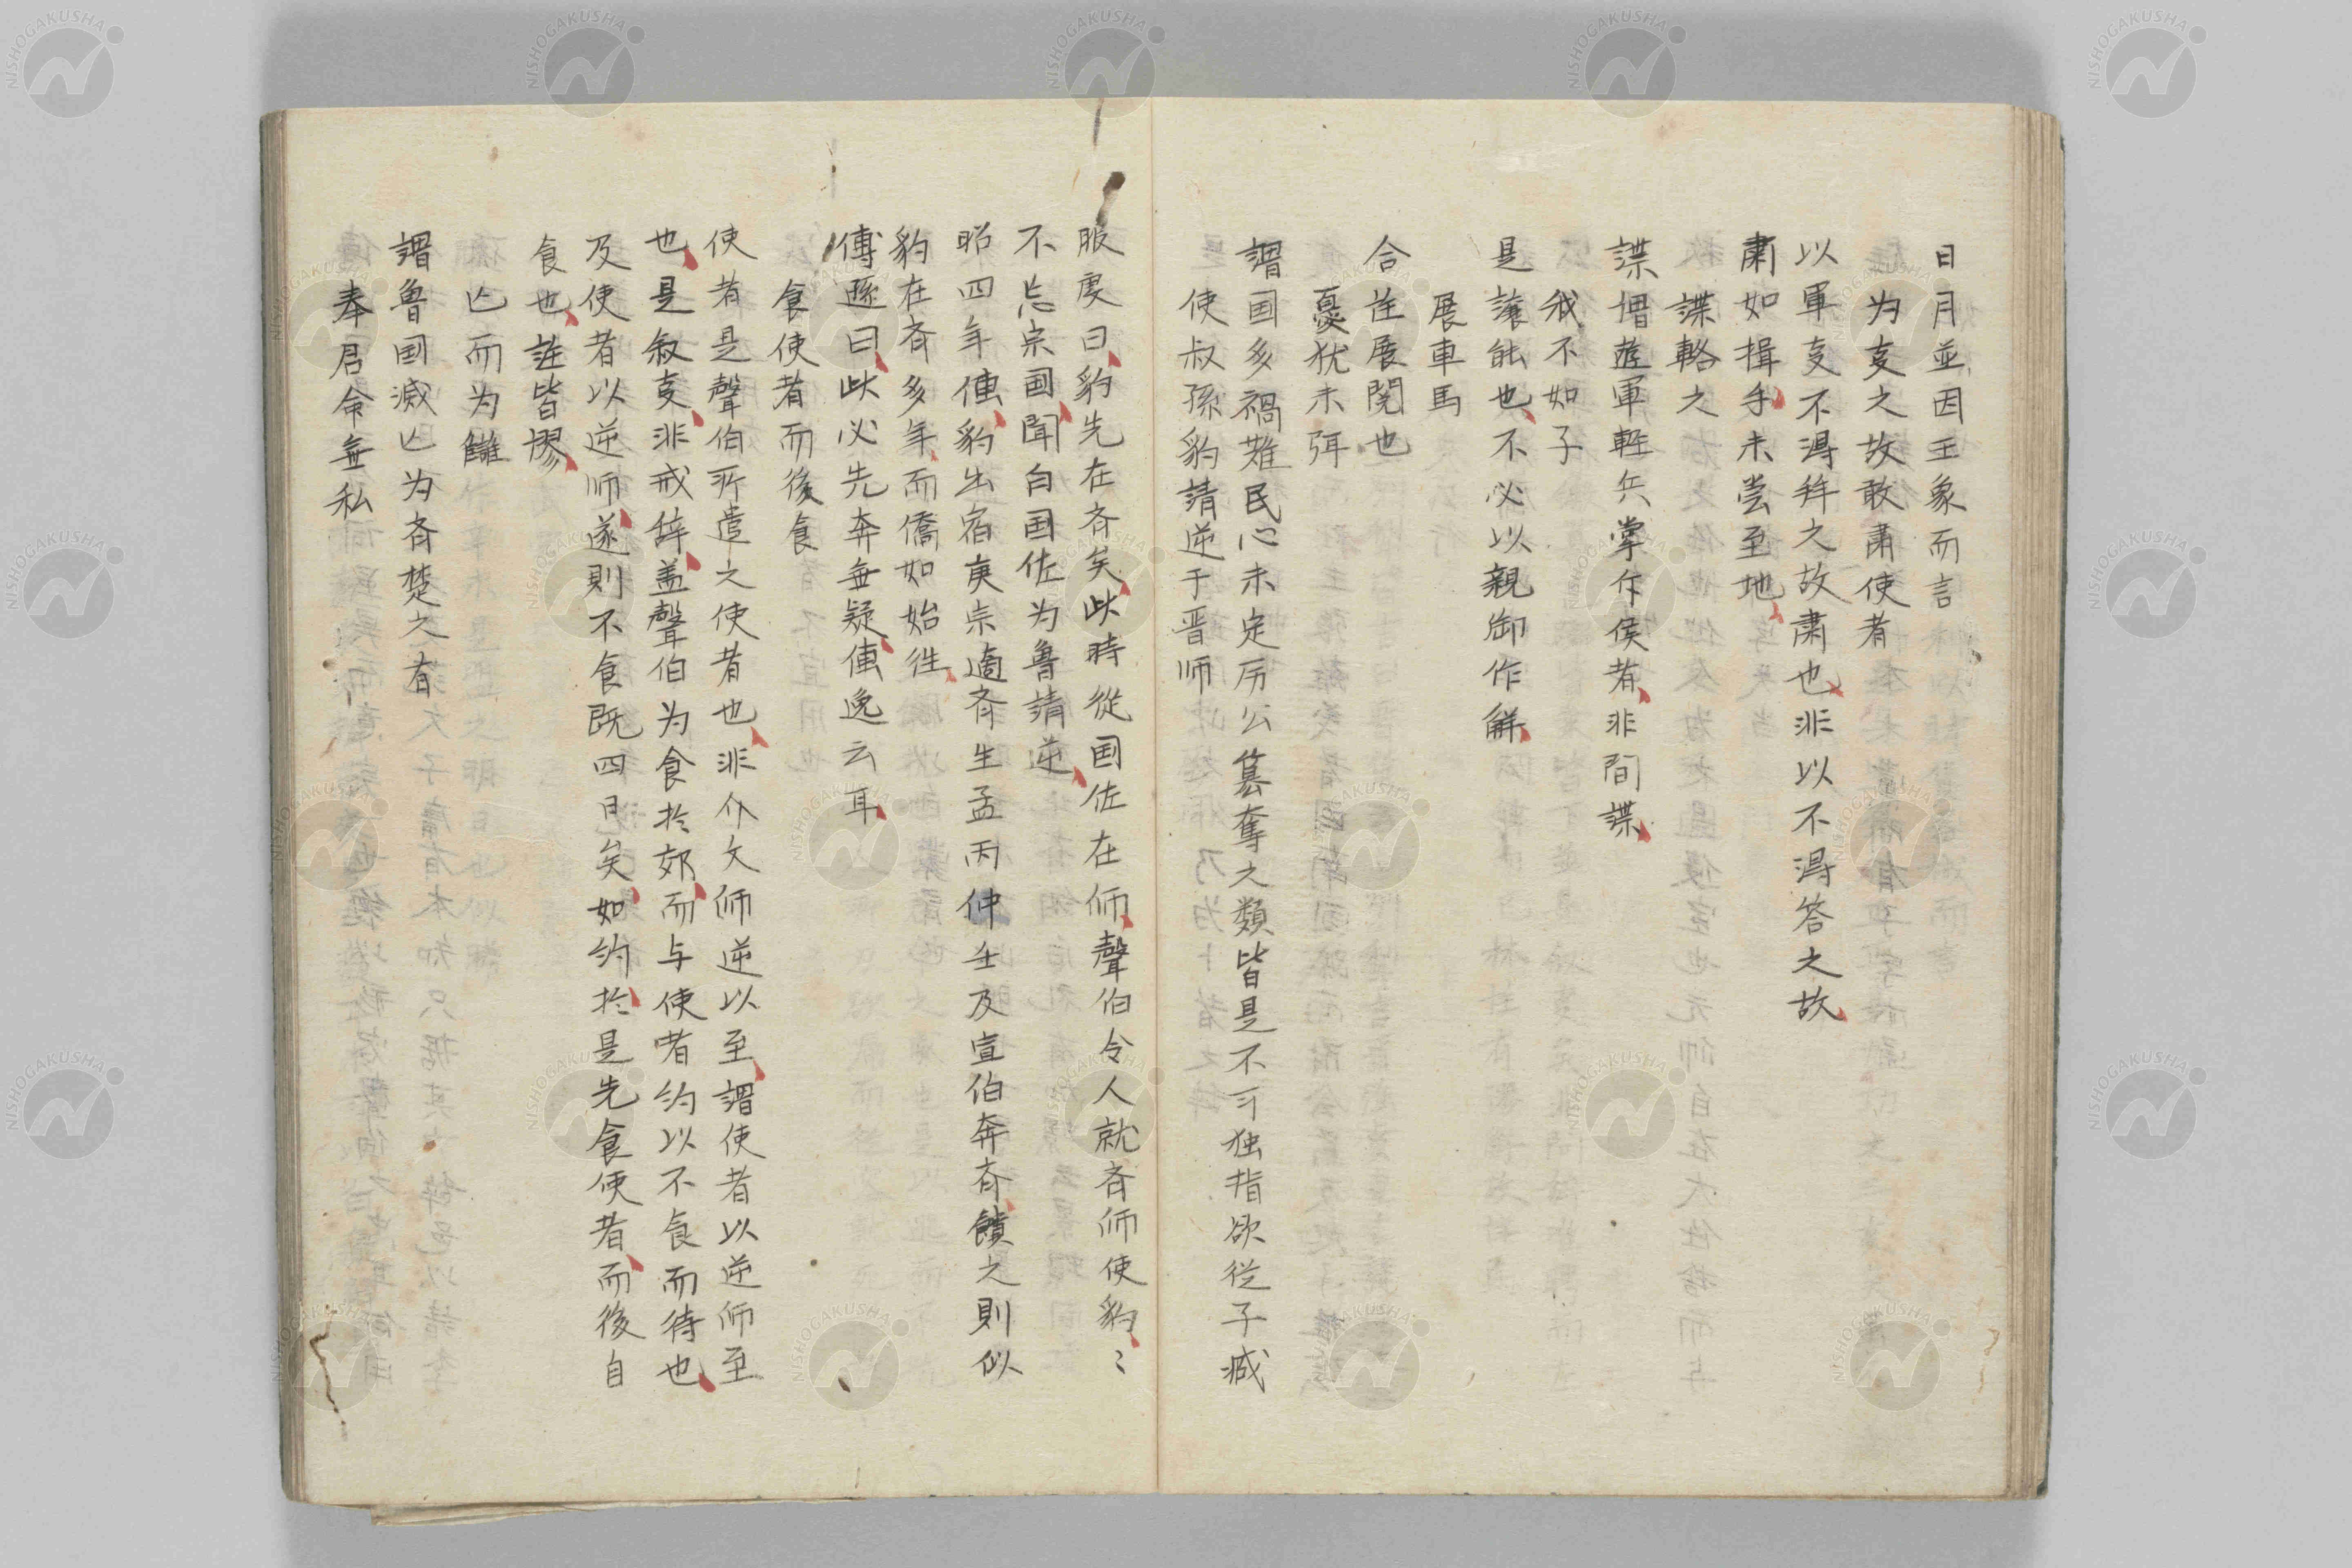 日月並因王象而言
为㕝之故敢肅使者
以軍㕝不得拜之故肅也非以不得答之故
肅如揖手未嘗至地
諜輅之
諜憯遊軍軽兵掌斥侯者非間諜
我不如子
是讓能也不必以親御作解
展車馬
合註展閲也
憂犹未弭
謂国多禍難民心未定厉公簒奪之類皆是不可独指欲従子臧
使叔孫豹請逆于晋师
服虔曰豹先在斉矣此時從国佐在师聲伯令人就斉师使豹〻
不忘宗国聞白国佐为魯請逆
昭四年傳豹出宿庚宗適斉生孟丙仲壬及宣伯奔斉饋之則似
豹在斉多年而僑如始徃
傅遜曰此必先奔無疑傳逸云耳
食使者而後食
使者是聲伯所遣之使者也非介文师逆以至謂使者以逆师至
也是叙㕝非戒辞盖聲伯为食扵郊而与使者约以不食而待也
及使者以逆师遂則不食既四日矣如约扵是先食使者而後自
食也註皆謬
亾而为讎
謂魯国滅亾为斉楚之有
奉君命無私